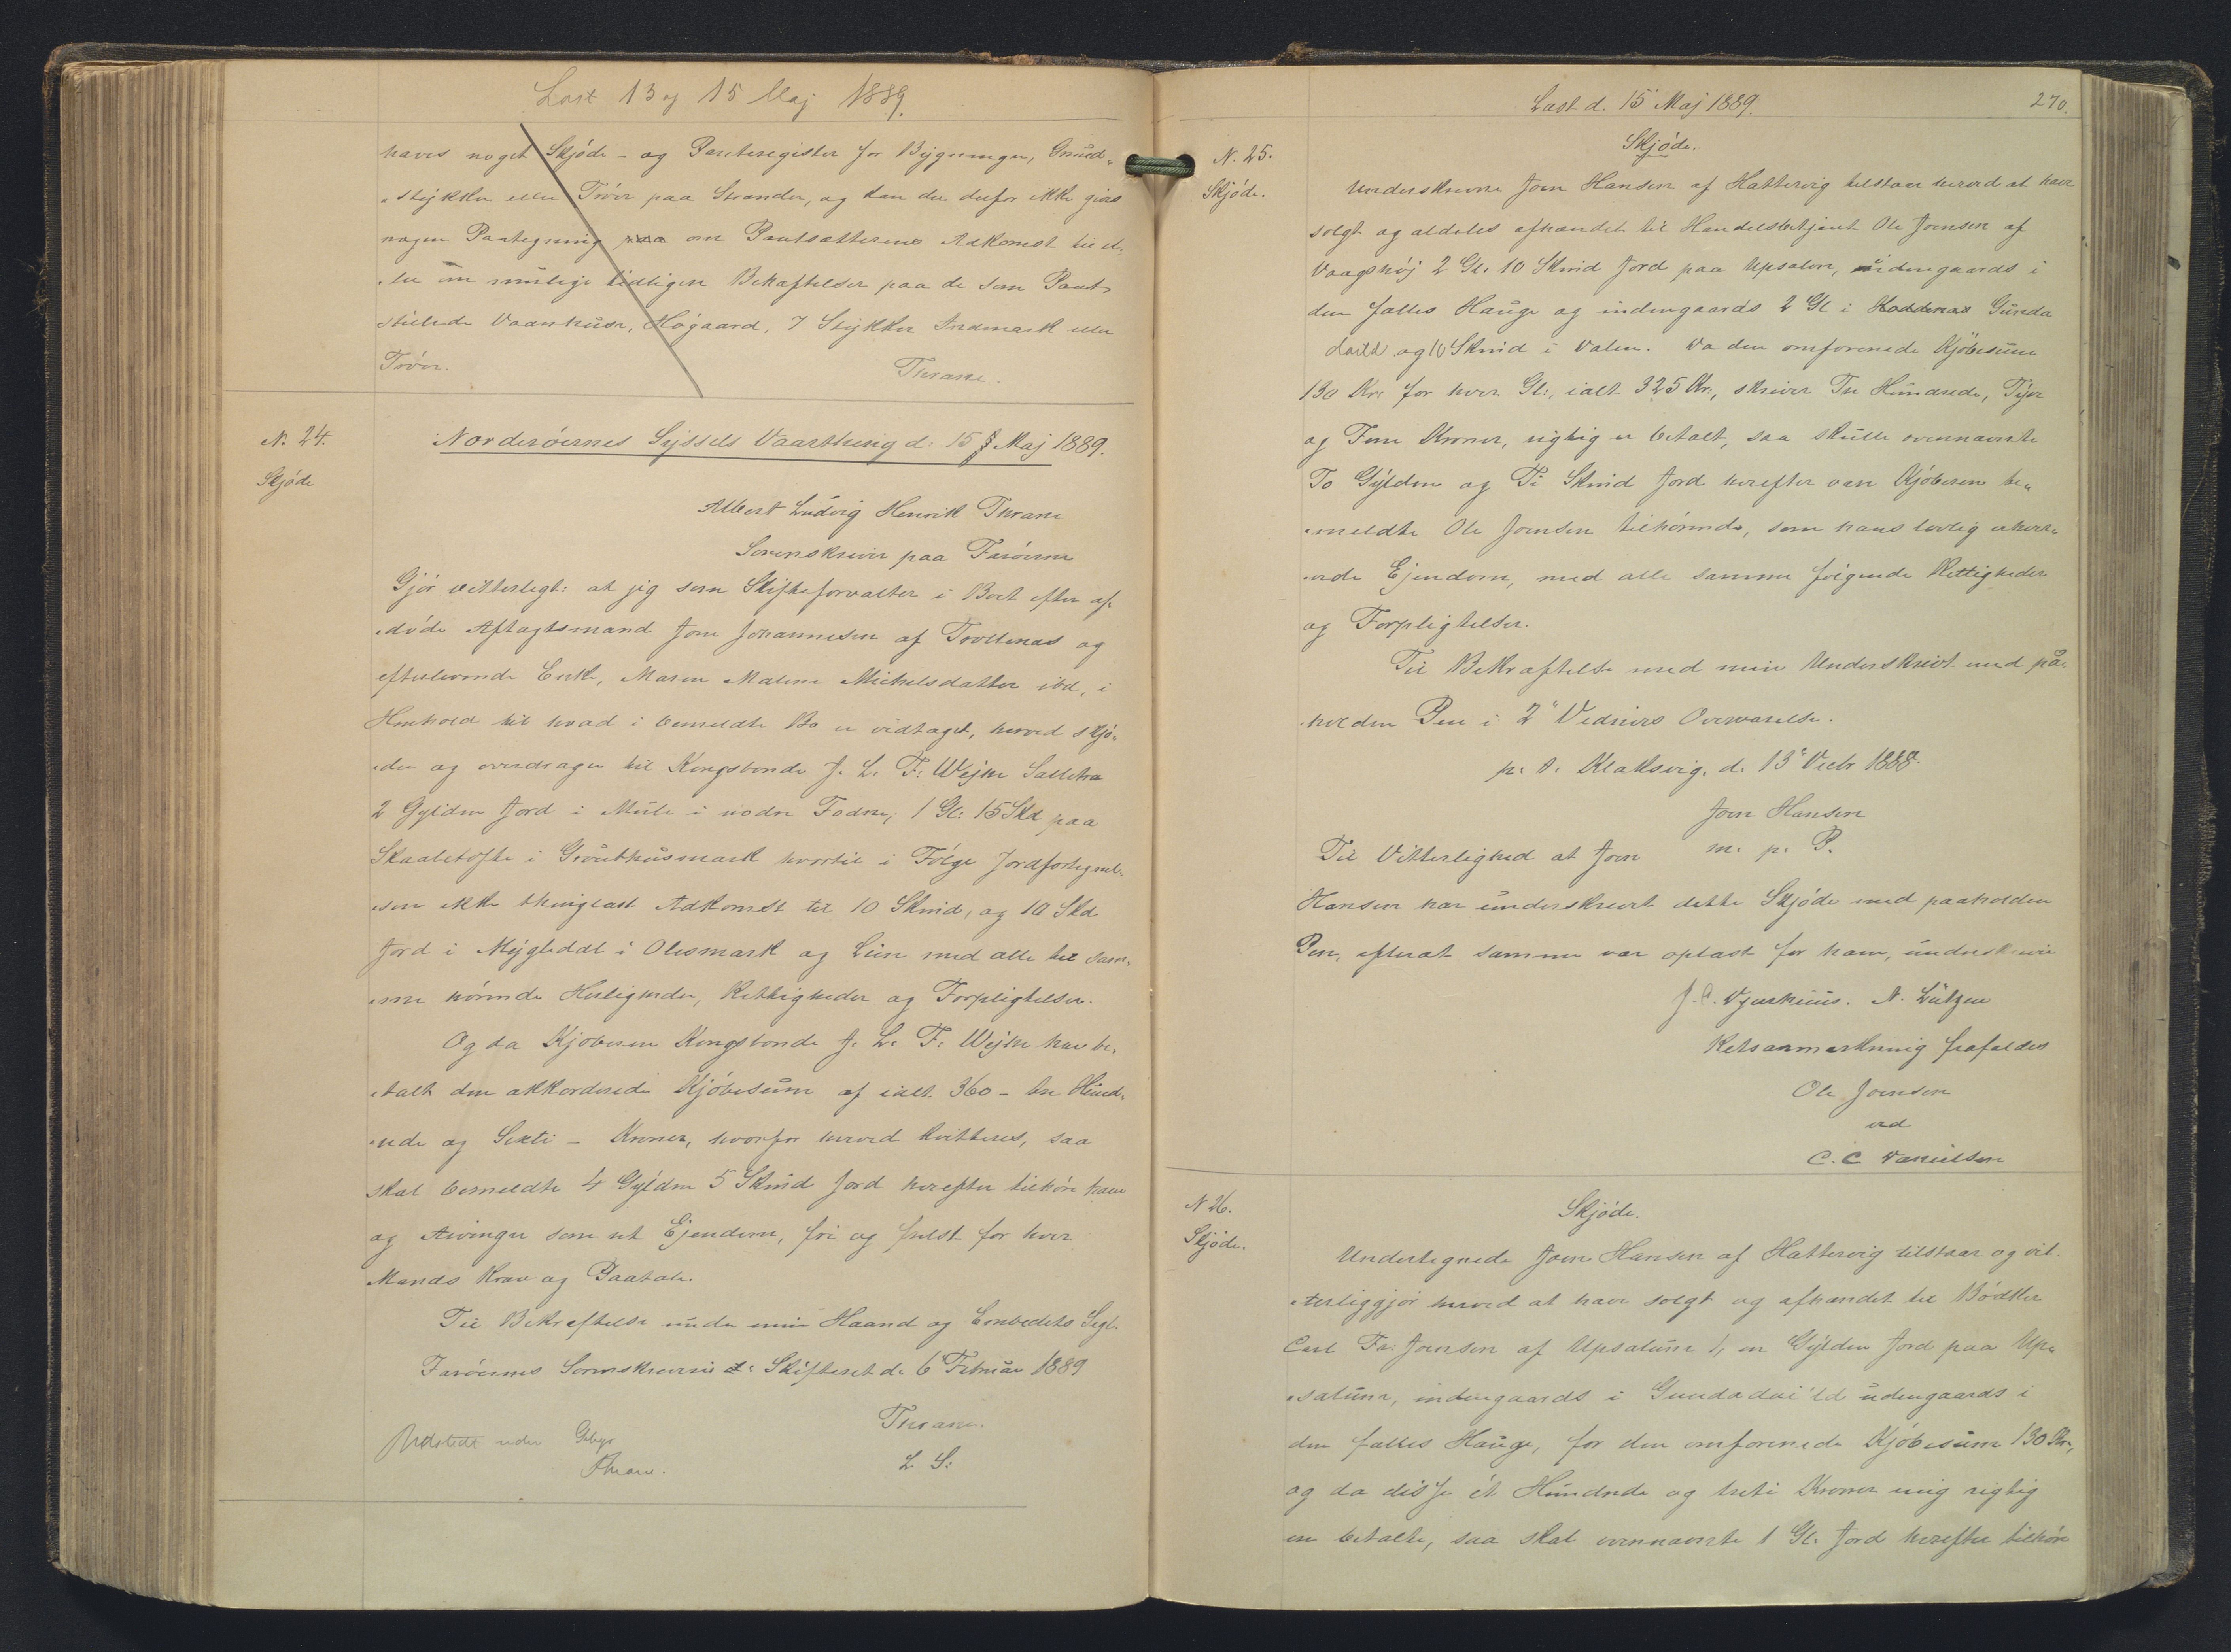 Læst 13 og 15 Maj 1889.
haves noget Skjöde- og Panteregister for Bygninger, Grund-
stykker eller Tröer paa Strander, og kan der derfor ikke gives
nogen Paategning om Pantsætterens Adkomst til el-
ler om mulige tidligere Behæftelser paa de som Pant
stillede Vaanhuse, Högaard, 7 Stykker Indmark eller
Tröer.
Thrane.
N. 24.
Skjöde
Norderöernes Syssels Vaarthing d. 15 Maj 1889.
Albert Ludvig Henrik Thrane
Sorenskriver paa Færöerne
Gjör vitterligt: at jeg som Skifteforvalter i Boet efter af-
döde Aftagtsmand Joen Johannesen af Trollenæs og
efterlevende Enke, Maren Malene Michelsdatter ibd, i
Henhold til hvad i bemeldte Bo er vedtaget, herved skjö-
der og overdrager til Kongsbonde J. L. F. Wejhe Salletræ
2 Gylden Jord i Mule i nodre Fodne; 1 Gl. 15 Skd paa
Skaaletofte i Grouthusmark hvortil i Fölge Jordfortegnel-
sen ikke thinglæst Adkomst til 10 Skind, og 10 Skd
Jord i Mygledal i Olesmark og Leen med alle til sam-
me hörende Herligheder, Rettigheder og Forpligtelser.
Og da Kjöberen Kongsbonde J. L. F. Wejhe har be-
talt den akkorderede Kjöbesum af ialt 360 - tre Hund-
rede og Sexti - Kroner, hvorfor herved kvitteres, saa
skal bemeldte 4 Gylden 5 Skind Jord herefter tilhöre ham
og Arvinger som ret Ejendom, fri og frelst for hver
Mands Krav og Paatale.
Til Bekræftelse under min Haand og Embedets Segl.
Færöernes Sorenskriveri d: Skifteret d. 6 Februar 1889
Thrane.
L. S.
Udstedt uden Gebyr
Thrane.
Læst d. 15 Maj 1889.
270.
N. 25.
Skjöde.
Skjöde.
Underskrevne Joen Hansen af Hattervig tilstaar herved at have
solgt og aldeles afhændet til Handelsbetjent Ole Joensen af
Vaagshöj 2 Gl. 10 Skind Jord paa Upsalen, udengaards i
den fælles Hauge og indengaards 2 Gl i Gunda
daild og 10 Skind i Valen. Da den omforenede Kjöbesum
130 Kr. for hver Gl:, ialt 325 Kr., skriver Tre Hundrede, Tyve
og Fem Kroner, rigtig er betalt, saa skulle ovennævnte
To Gylden og Ti Skind Jord herefter være Kjöberen be-
meldte Ole Joensen tilhörende, som hans lovlig erhver-
vede Ejendom, med alle samme fölgende Rettigheder
og Forpligtelser.
Til Bekræftelse med min Underskrivt med paa-
holden Pen i 2 Vedners Overværelse.
p. t. Klaksvig, d. 13 Decbr 1888.
Joen Hansen
m. p. P.
Til Vitterlighed at Joen
Hansen har underskrevet dette Skjöde med paaholden
Pen, efterat samme var oplæst for ham, underskrive
J. C. Djurhuus. N. Lützen
Retsanmærkning frafaldes
Ole Joensen
ved
C. C Danielsen
N 26.
Skjöde.
Skjöde.
Undertegnede Joen Hansen af Hattervig tilstaar og vit-
terliggjör herved at have solgt og afhændet til Bödker
Carl Fr. Joensen af Upsalune 1, en Gylden Jord paa Up-
salune, indengaards i Gundadaild udengaards i
den fælles Hauge, for den omforenede Kjöbesum 130 Kr.,
og da disse ét Hundrede og treti Kroner mig rigtig
er betalte, saa skal ovennævnte 1 Gl. Jord herefter tilhöre